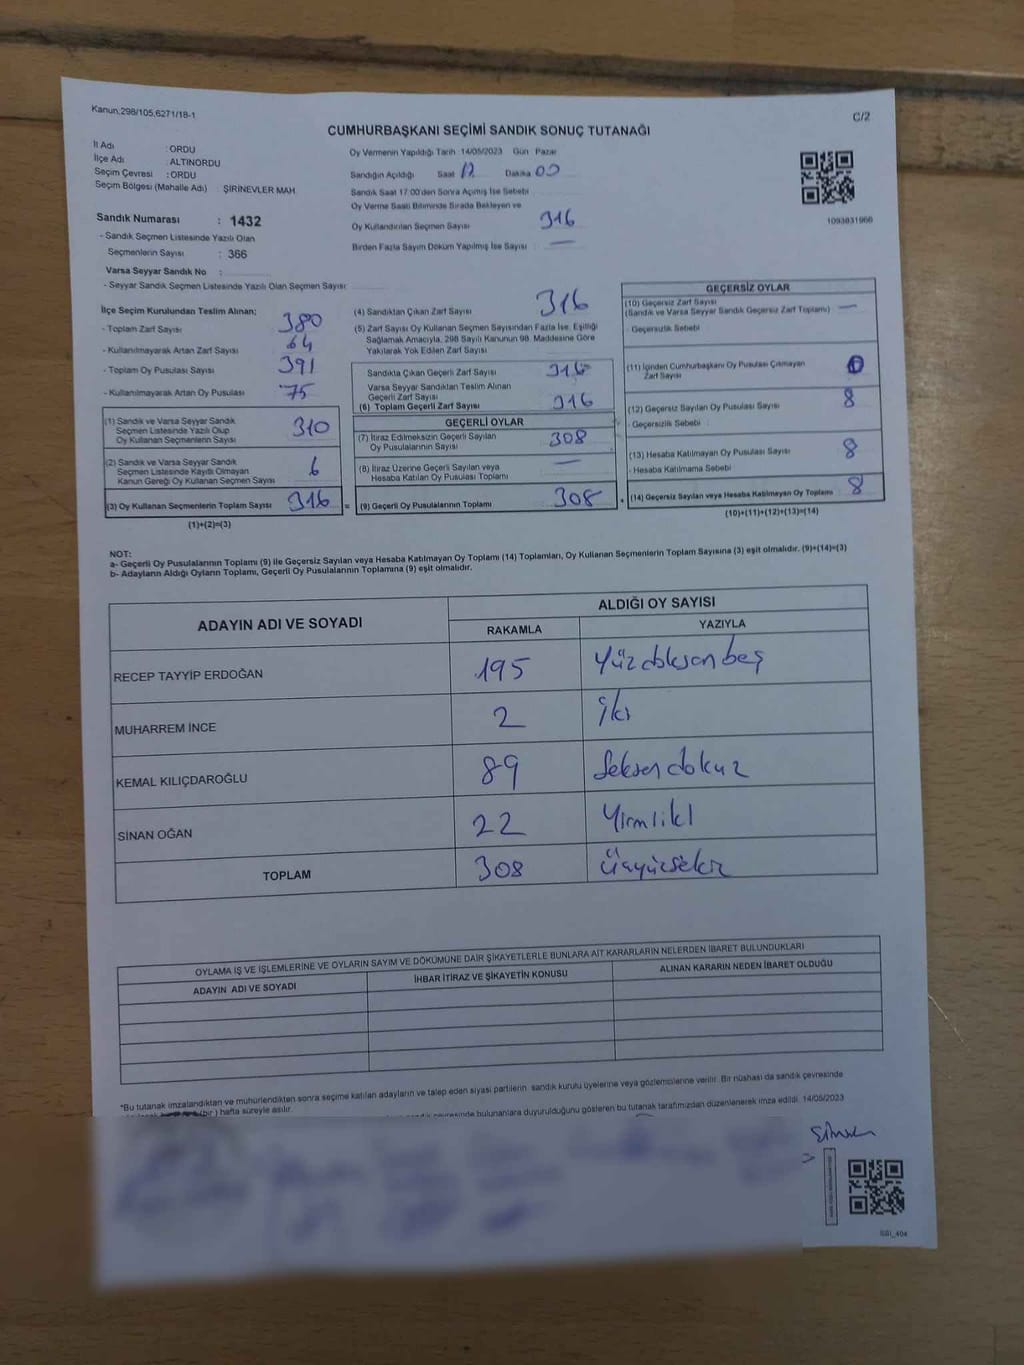 Kanun.298/105,6271/18-1
C/2
CUMHURBAŞKANI SEÇİMİ SANDIK SONUÇ TUTANAĞI
İl Adı : ORDU
İlçe Adı : ALTINORDU
Seçim Çevresi : ORDU
Seçim Bölgesi (Mahalle Adı) : ŞİRİNEVLER MAH.
Sandık Numarası : 1432
- Sandık Seçmen Listesinde Yazılı Olan
Seçmenlerin Sayısı : 366
Varsa Seyyar Sandık No :
- Seyyar Sandık Seçmen Listesinde Yazılı Olan Seçmen Sayısı:
Oy Vermenin Yapıldığı Tarih :14/05/2023 Gün : Pazar
Sandığın Açıldığı Saat Dakika 00
Sandık Saat 17:00'den Sonra Açılmış İse Sebebi
Oy Verme Saati Bitiminde Sırada Bekleyen ve
Oy Kullandırılan Seçmen Sayısı 316
Birden Fazla Sayım Döküm Yapılmış İse Sayısı —
1093831966
İlçe Seçim Kurulundan Teslim Alınan;
- Toplam Zarf Sayısı 380
- Kullanılmayarak Artan Zarf Sayısı 64
- Toplam Oy Pusulası Sayısı 391
- Kullanılmayarak Artan Oy Pusulası 75
(1) Sandık ve Varsa Seyyar Sandık
Seçmen Listesinde Yazılı Olup
Oy Kullanan Seçmenlerin Sayısı 310
(2) Sandık ve Varsa Seyyar Sandık
Seçmen Listesinde Kaydı Olmayan
Kanun Gereği Oy Kullanan Seçmen Sayısı 6
(3) Oy Kullanan Seçmenlerin Toplam Sayısı 316
(1)+(2)=(3)
(4) Sandıktan Çıkan Zarf Sayısı 316
(5) Zarf Sayısı Oy Kullanan Seçmen Sayısından Fazla İse, Eşitliği
Sağlamak Amacıyla, 298 Sayılı Kanunun 98. Maddesine Göre
Yakılarak Yok Edilen Zarf Sayısı
Sandıkta Çıkan Geçerli Zarf Sayısı 316
Varsa Seyyar Sandıktan Teslim Alınan
Geçerli Zarf Sayısı
(6) Toplam Geçerli Zarf Sayısı 316
GEÇERLİ OYLAR
(7) İtiraz Edilmeksizin Geçerli Sayılan
Oy Pusulalarının Sayısı 308
(8) İtiraz Üzerine Geçerli Sayılan veya
Hesaba Katılan Oy Pusulası Toplamı —
= (9) Geçerli Oy Pusulalarının Toplamı 308
GEÇERSİZ OYLAR
(10) Geçersiz Zarf Sayısı
(Sandık ve Varsa Seyyar Sandık Geçersiz Zarf Toplamı) —
- Geçersizlik Sebebi
(11) İçinden Cumhurbaşkanı Oy Pusulası Çıkmayan
Zarf Sayısı 0
(12) Geçersiz Sayılan Oy Pusulası Sayısı 8
- Geçersizlik Sebebi :
(13) Hesaba Katılmayan Oy Pusulası Sayısı 8
- Hesaba Katılmama Sebebi
+ (14) Geçersiz Sayılan veya Hesaba Katılmayan Oy Toplamı 8
(10)+(11)+(12)+(13)=(14)
NOT:
a- Geçerli Oy Pusulalarının Toplamı (9) ile Geçersiz Sayılan veya Hesaba Katılmayan Oy Toplamı (14) Toplamları, Oy Kullanan Seçmenlerin Toplam Sayısına (3) eşit olmalıdır. (9)+(14)=(3)
b- Adayların Aldığı Oyların Toplamı, Geçerli Oy Pusulalarının Toplamına (9) eşit olmalıdır.
ADAYIN ADI VE SOYADI
ALDIĞI OY SAYISI
RAKAMLA YAZIYLA
RECEP TAYYİP ERDOĞAN 195 Yüzdoksanbeş
MUHARREM İNCE 2 iki
KEMAL KILIÇDAROĞLU 89 Seksendokuz
SİNAN OĞAN 22 Yirmiiki
TOPLAM 308 Üçyüzsekiz
OYLAMA İŞ VE İŞLEMLERİNE VE OYLARIN SAYIM VE DÖKÜMÜNE DAİR ŞİKAYETLERLE BUNLARA AİT KARARLARIN NELERDEN İBARET BULUNDUKLARI
ADAYIN ADI VE SOYADI İHBAR İTİRAZ VE ŞİKAYETİN KONUSU ALINAN KARARIN NEDEN İBARET OLDUĞU
*Bu tutanak imzalandıktan ve mühürlendikten sonra seçime katılan adayların ve talep eden siyasi partilerin sandık kurulu üyelerine veya gözlemcilerine verilir. Bir nüshası da sandık çevresinde
(bir) hafta süreyle asılır.
bulunanlara duyurulduğunu gösteren bu tutanak tarafımızdan düzenlenerek imza edildi. 14/05/2023